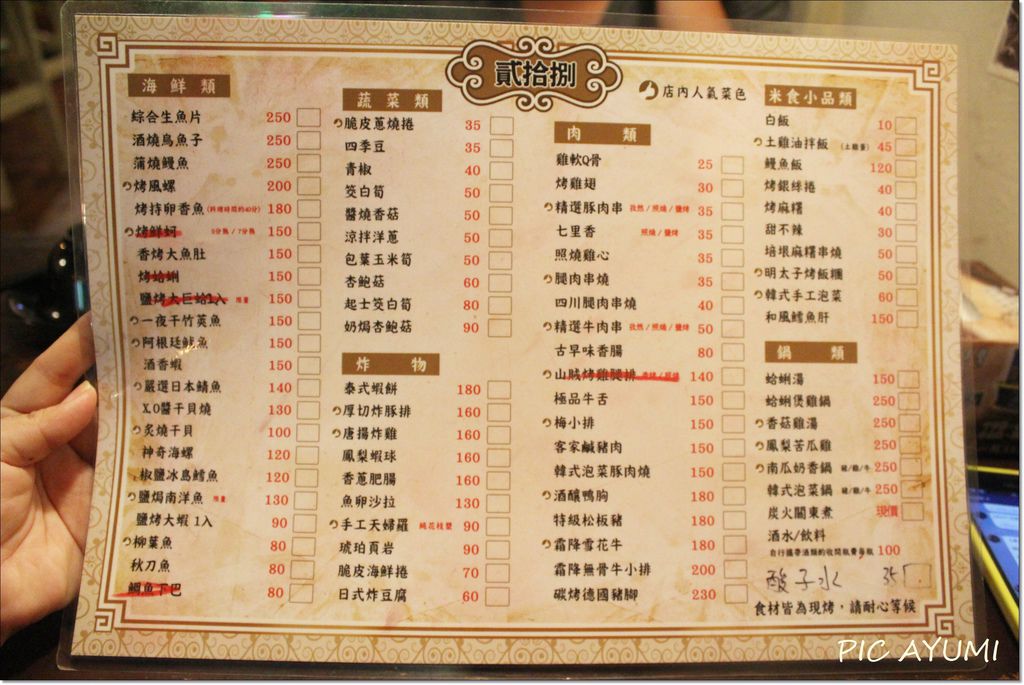 貳拾捌
店內人氣菜色
海鮮類
綜合生魚片 250
酒燒烏魚子 250
蒲燒鰻魚 250
烤風螺 200
烤持卵香魚(料理時間約40分) 180
烤鮮蚵 5分熟/7分熟 150
香烤大魚肚 150
烤蛤蜊 150
鹽烤大巨蛤1入 限量 150
一夜干竹筴魚 150
阿根廷魷魚 150
酒香蝦 150
嚴選日本鯖魚 140
X.O醬干貝燒 130
炙燒干貝 100
神奇海螺 120
椒鹽冰島鱈魚 120
鹽焗南洋魚 限量 130
鹽烤大蝦 1入 90
柳葉魚 80
秋刀魚 80
鯛魚下巴 80
蔬菜類
脆皮蔥燒捲 35
四季豆 35
青椒 40
筊白筍 50
醬燒香菇 50
涼拌洋蔥 50
包葉玉米筍 50
杏鮑菇 60
起士筊白筍 80
奶焗杏鮑菇 90
炸物
泰式蝦餅 180
厚切炸豚排 160
唐揚炸雞 160
鳳梨蝦球 160
香蔥肥腸 160
魚卵沙拉 130
手工天婦羅 純花枝漿 90
琥珀頁岩 90
脆皮海鮮捲 70
日式炸豆腐 60
肉類
雞軟Q骨 25
烤雞翅 30
精選豚肉串 孜然/照燒/鹽烤 35
七里香 照燒/鹽烤 35
照燒雞心 35
腿肉串燒 35
四川腿肉串燒 40
精選牛肉串 孜然/照燒/鹽烤 50
古早味香腸 80
山賊烤雞腿排 140
極品牛舌 150
梅小排 150
客家鹹豬肉 150
韓式泡菜豚肉燒 150
酒釀鴨胸 180
特級松板豬 180
霜降雪花牛 180
霜降無骨牛小排 200
碳烤德國豬腳 230
米食小品類
白飯 10
土雞油拌飯 (土雞蛋) 45
鰻魚飯 120
烤銀絲捲 40
烤麻糬 40
甜不辣 30
培根麻糬串燒 50
明太子烤飯糰 50
韓式手工泡菜 60
和風鱈魚肝 150
鍋類
蛤蜊湯 150
蛤蜊煲雞鍋 250
香菇雞湯 250
鳳梨苦瓜雞 250
南瓜奶香鍋 豬/雞/牛 250
韓式泡菜鍋 豬/雞/牛 250
炭火關東煮 現價
酒水/飲料
自行攜帶酒類酌收開瓶費每瓶 100
酸子水 35
食材皆為現烤，請耐心等候
PIC AYUMI